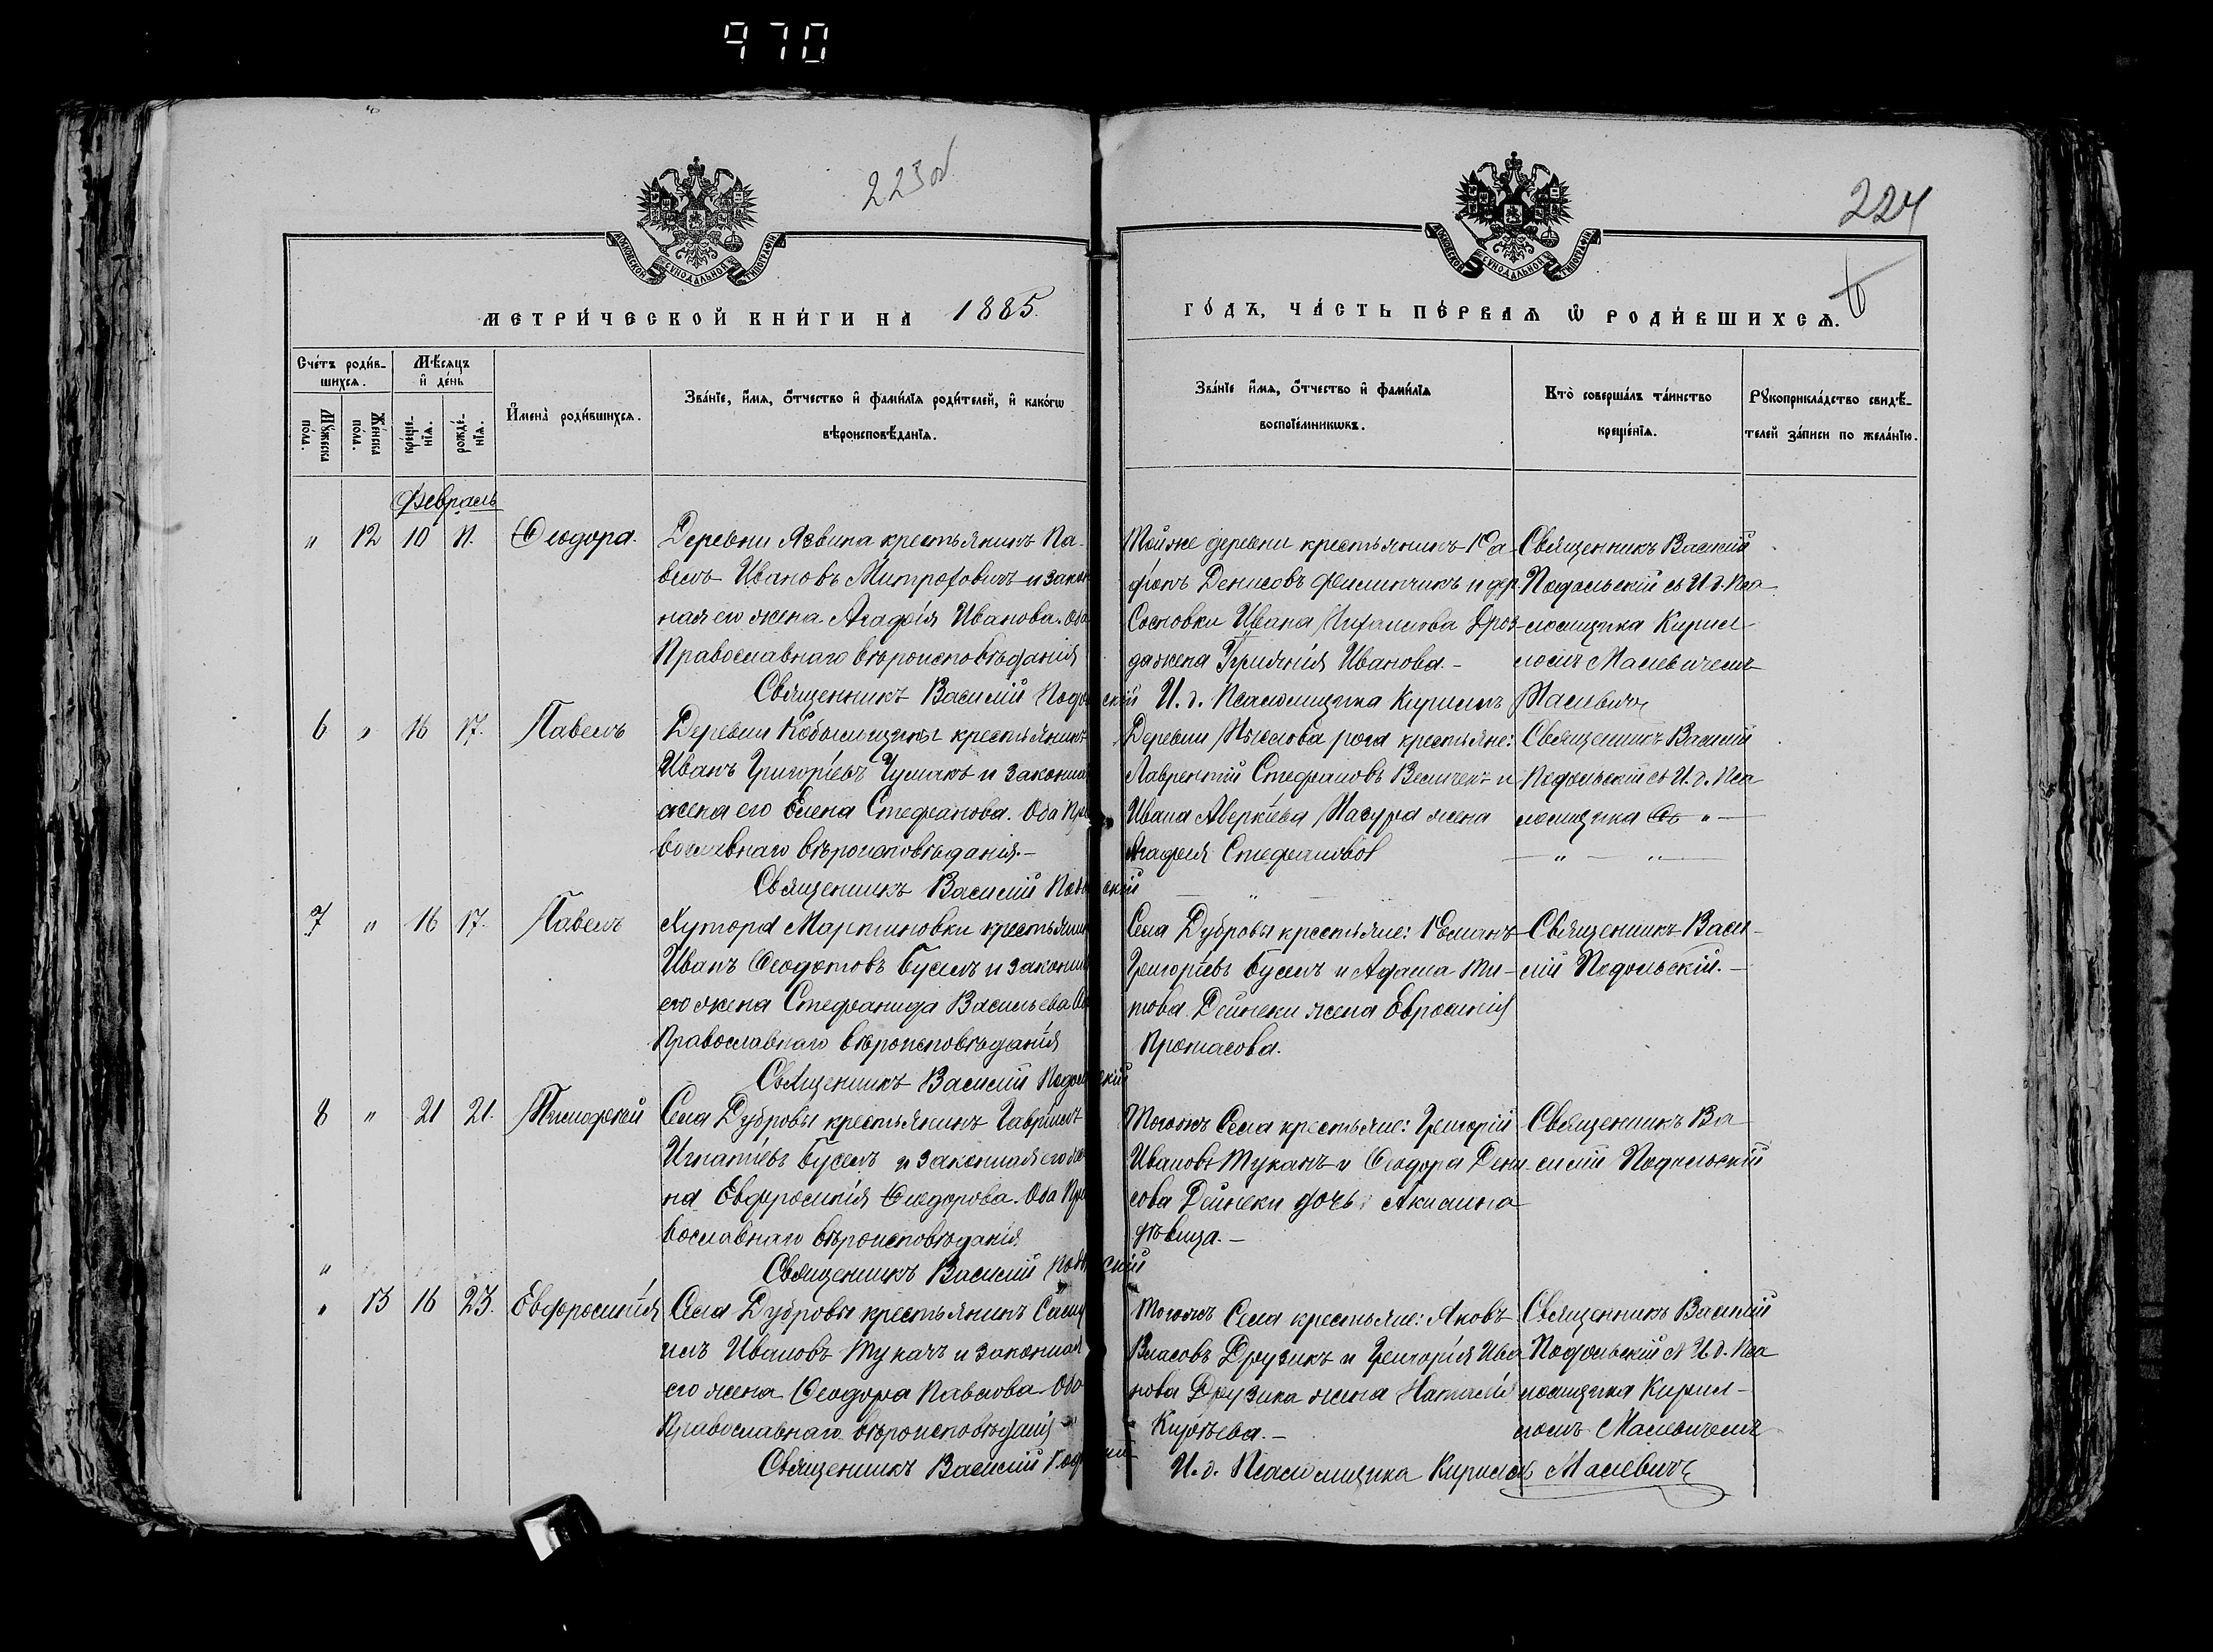 970
223об
224
МОСКОВСКОЙ СѴНОДАЛЬНОЙ ТИПОГРАФІИ
МОСКОВСКОЙ СѴНОДАЛЬНОЙ ТИПОГРАФІИ
МЕТРИ́ЧЕСКОЙ КНИ́ГИ НА 1885.
ГО́ДЪ, ЧА́СТЬ ПЕ́РВАѦ Ѿ РОДИ́ВШИХСѦ.
Сче́тъ роди́в-
шихсѧ.
Мѣ́сѧцъ
и҆ де́нь
Мꙋ́жеска по́ла.
Же́нска по́ла.
креще́-
нїѧ.
рожде́-
нїѧ.
И҆мена̀ роди́вшихсѧ.
Зва́нїе, и҆́мѧ, ѻ҆́тчество и҆ фами́лїѧ роди́телей, и҆ како́гѡ
вѣроисповѣ́данїѧ.
Зва́нїе и҆́мѧ, ѻ҆́тчество и҆ фами́лїѧ
воспрїе́мникѡвъ.
Кто̀ соверша́лъ та́инство
креще́нїѧ.
Рꙋкоприкла́дство свидѣ́-
телей за́писи по жела́нїю.
Февраль
" 12 10 11. Ѳеодора.
Деревни Язвина крестьянинъ Па-
велъ Ивановъ Митрофовичъ и закон
ная его жена Агафія Иванова. Оба
Православнаго вѣроисповѣданія
Священникъ Василій Подольскій И. д. Псаломщика Кириллъ Малевичъ
Тойже деревни крестьянинъ
Денисовъ и дер.
Сосновки Ивана Дроз-
да жена Иванова. -
Священникъ Василій
Подольскій съ И. д. Пса-
ломщика Кирил-
ломъ Малевичемъ
6 " 16 17. Павелъ
Деревни крестьянинъ
Иванъ Григоріевъ Чумакъ и законная
жена его Елена Стефанова. Оба Пра
вославнаго вѣроисповѣданія. -
Священникъ Василій Подольскій
Деревни рога крестьяне:
Лаврентій Стефановъ и
Ивана Аверкіева жена
Агафія Стефанова
Священникъ Василій
Подольскій съ И. д. Пса
ломщика "
" "
7 " 16 17. Павелъ
Хутора Мартиновки крестьянинъ
Иванъ Ѳеодотовъ Бусел и законная
его жена Стефанида Васильева Оба
Православнаго вѣроисповѣданія
Священникъ Василій Подольскій
Села Дубровы крестьяне: Романъ
Григоріевъ Буселъ и Адама Ти-
това Дейнеки жена Евросинія
Протасова.
Священникъ Васи-
лій Подольскій. -
8 " 21 21. Тимофеей
Села Дубровы крестьянинъ Гавріилъ
Игнатіевъ Буселъ и законная его же
на Евфросинія Ѳеодорова. Оба Пра
вославнаго вѣроисповѣданія
Священникъ Василій Подольскій
Тогожъ Села крестьяне: Григорій
Ивановъ Туканъ и Ѳеодора Дени-
сова Дейнеки дочь Акилина
дѣвица. -
Священникъ Ва
силій Подольскій
" 13 16 23. Евфросинія
Села Дубровы крестьянинъ Саму
илъ Ивановъ и законная
его жена Ѳеодора Павлова Оба
Православнаго вѣроисповѣданія
Священникъ Василій
Тогожъ Села крестьяне: Яковъ
Власовъ Друзикъ и Григорія Ива
нова Друзика жена Наталія
Кирѣева. -
Священникъ Василій
Подольскій съ И. д. Пса
ломщика Кирил-
ломъ Малевичемъ
И. д. Псаломщика Кириллъ Малевичъ